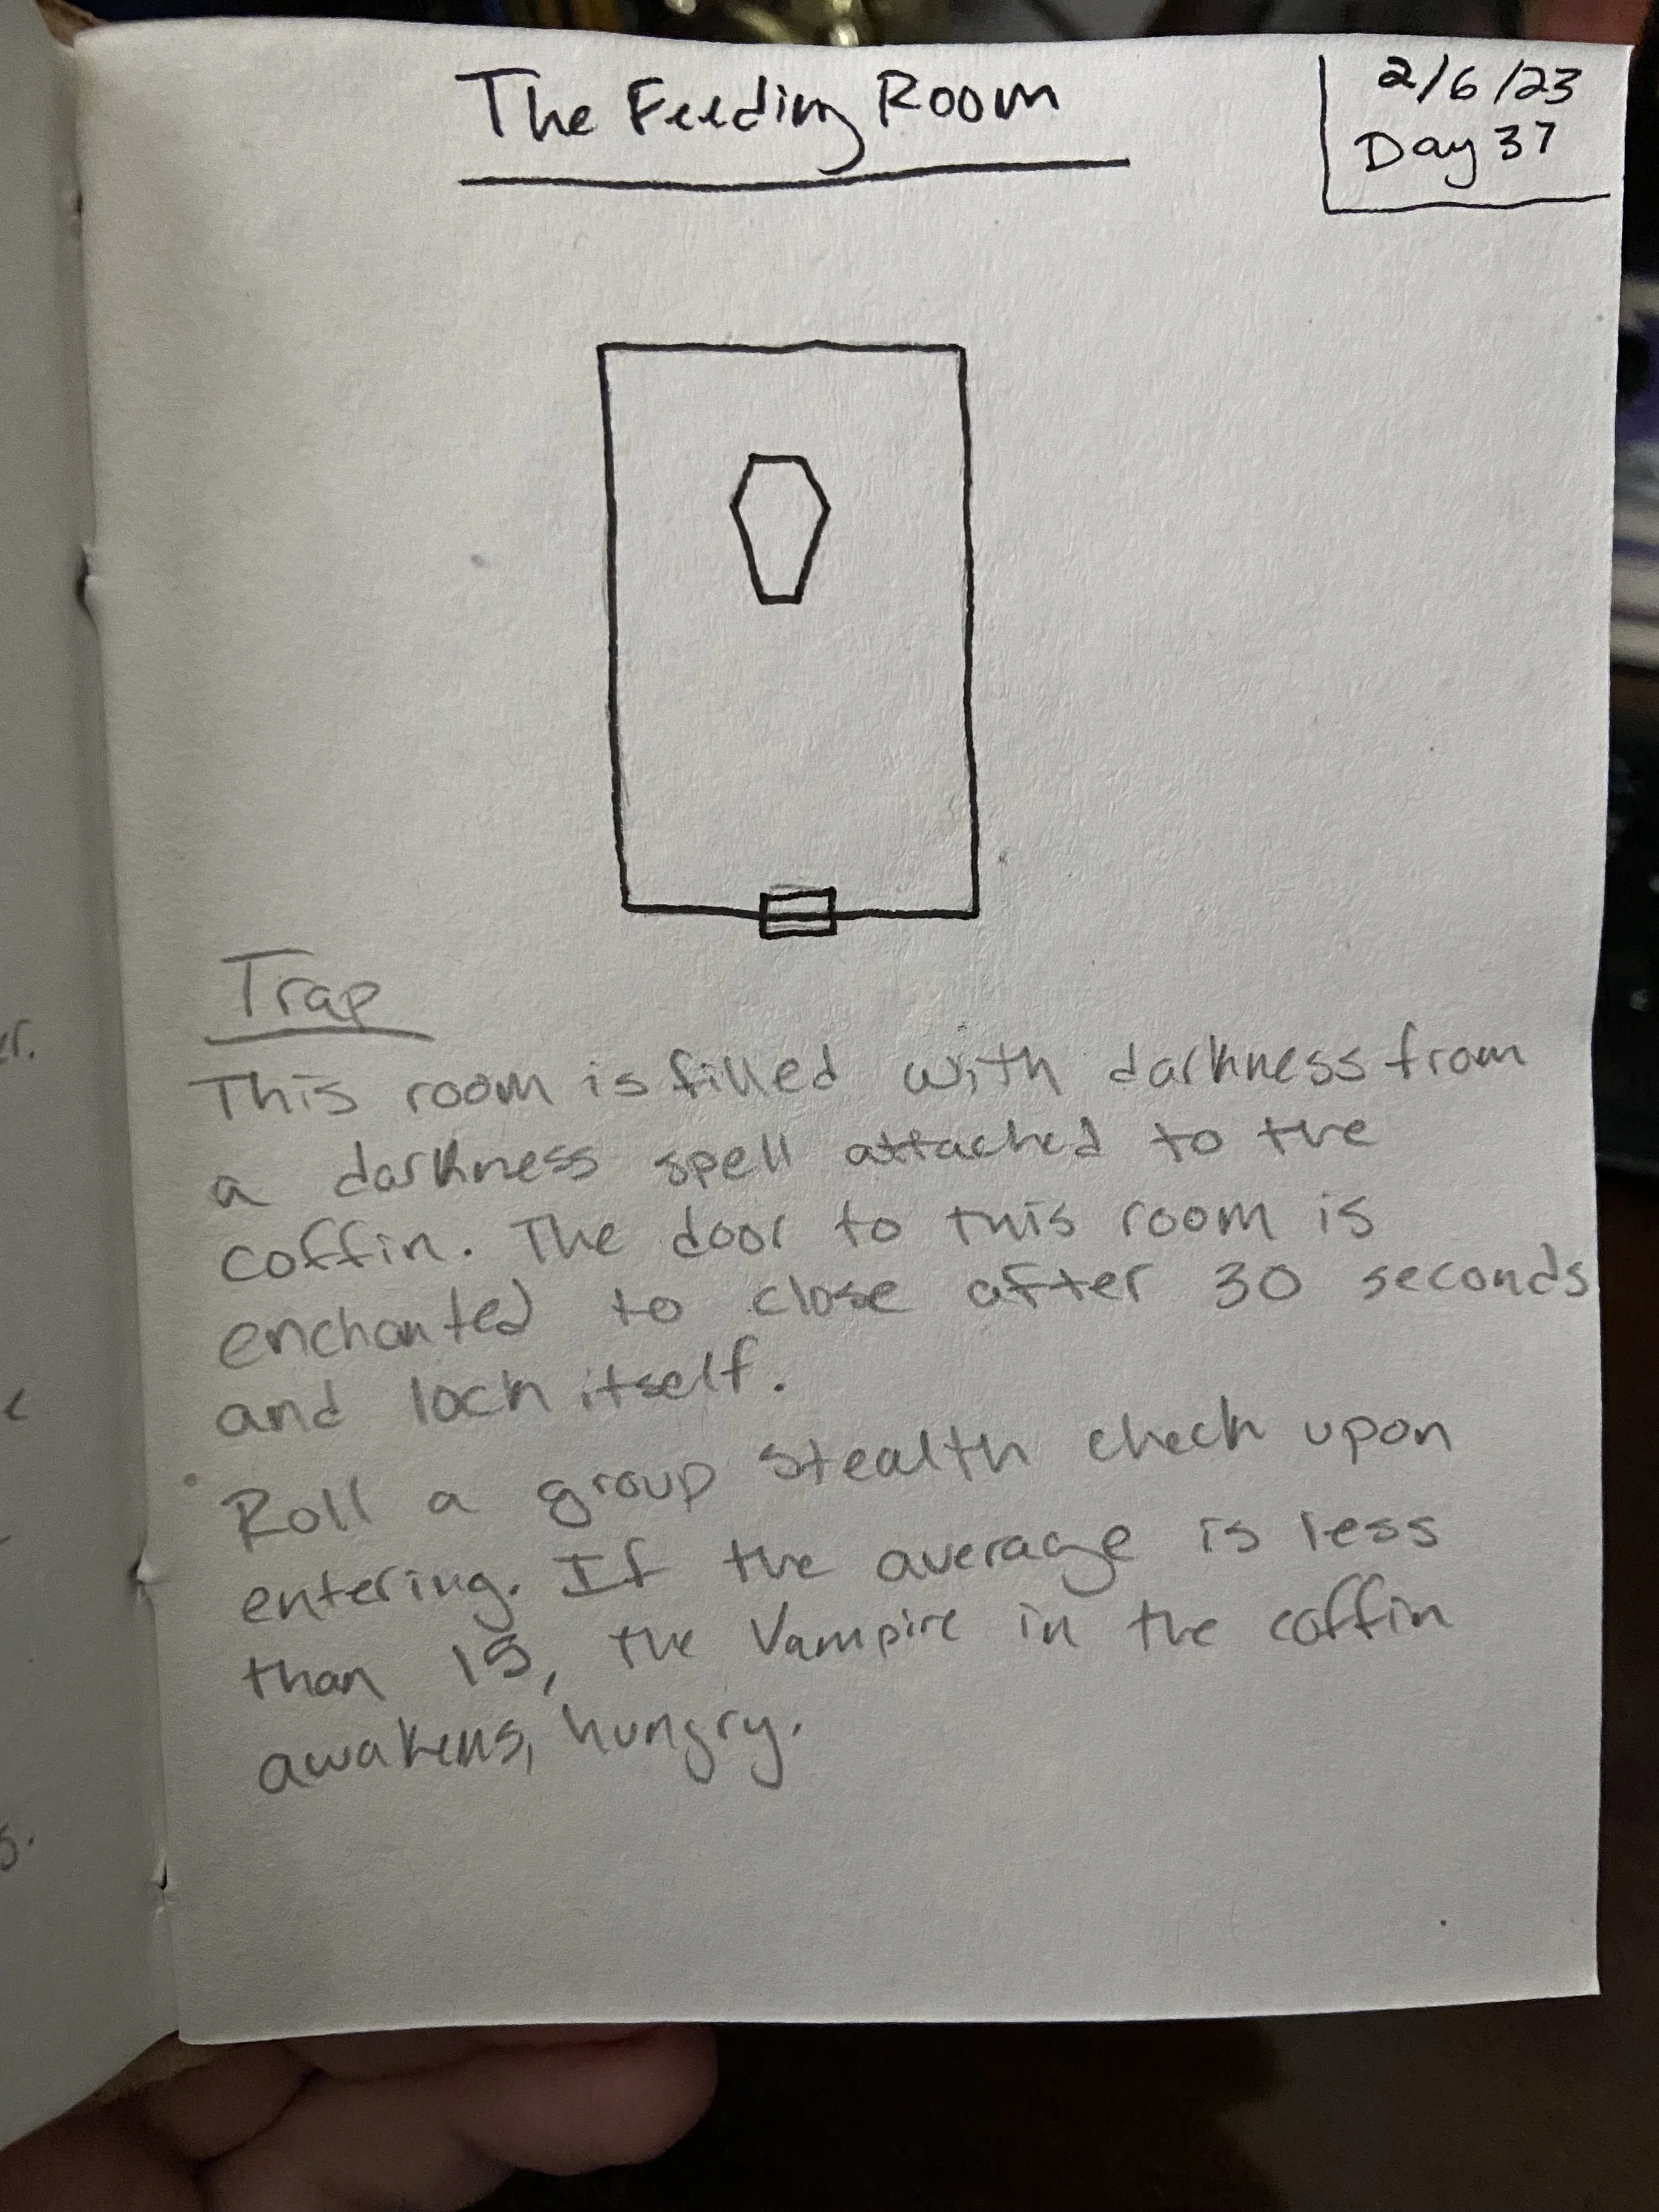 The Feeding Room
2/6/23
Day 37
Trap
This room is filled with darkness from
a darkness spell attached to the
coffin. The door to this room is
enchanted to close after 30 seconds
and lock itself.
Roll a group stealth check upon
entering. If the average is less
than 15, the Vampire in the coffin
awakens, hungry.
er.
s.